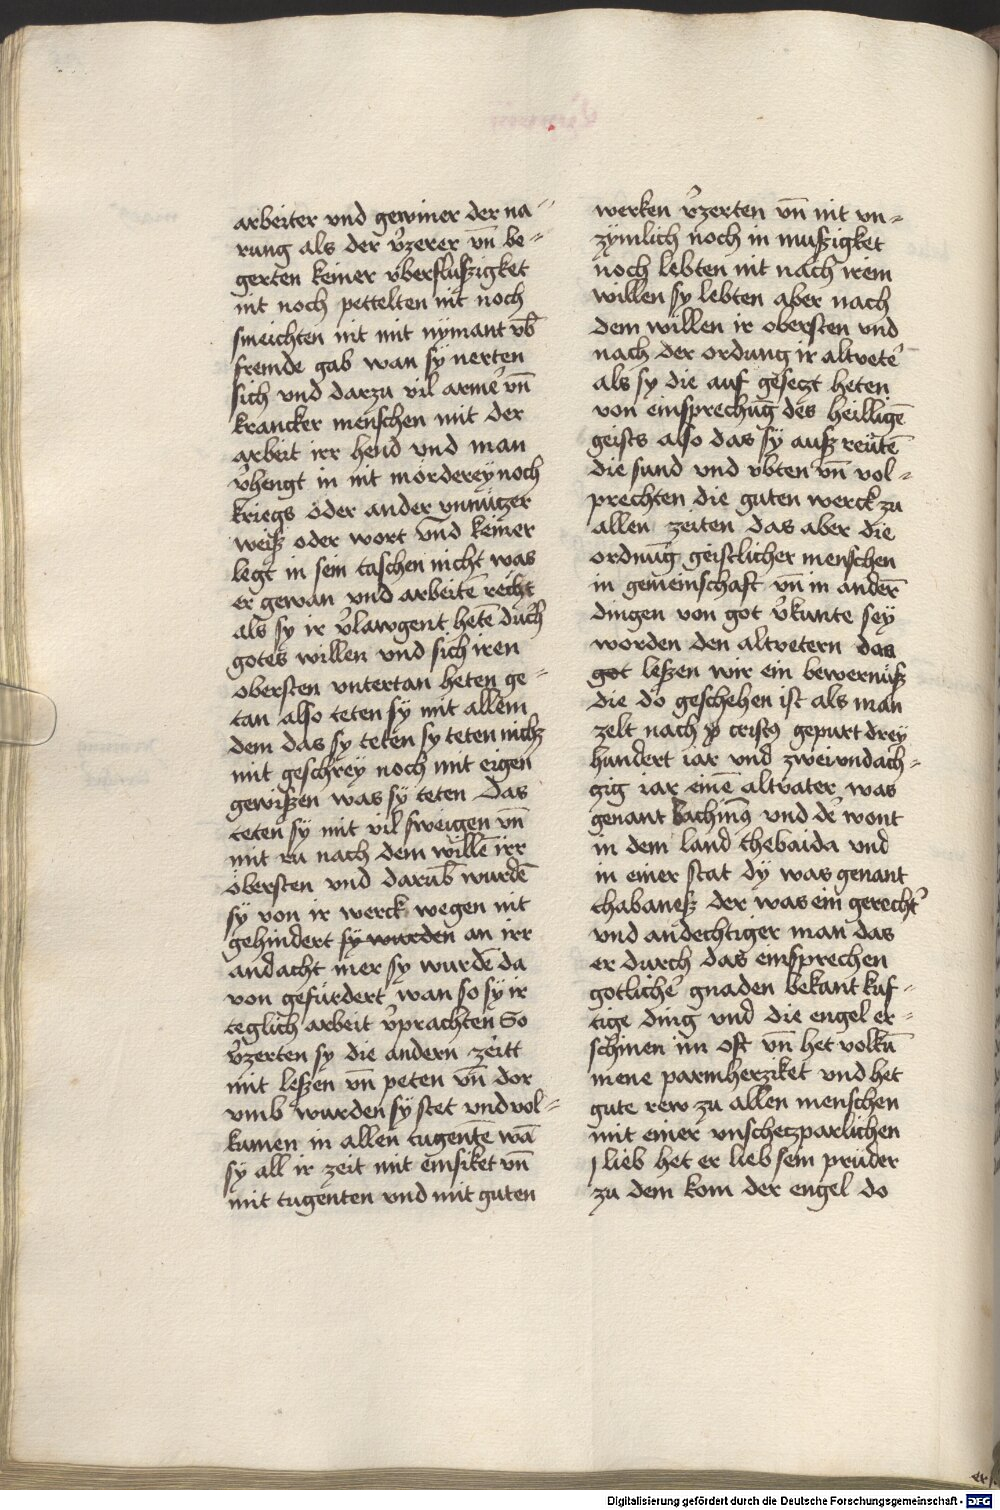 arbeiter vnd gewiner der na=
rung als der v̉zerer vn̄ be=
gerten keiner vberfluſzigket
nit noch pettelten nit noch
ſmeichten nit mit nÿmant vb̄
fremde gab wan sÿ nerten
ſich vnd darzu vil armẻ vn̄
krancker menſchen mit der
arbeit irr hend vnd man
v̉hengt in nit mörderey noch
kriegs oder ander vnnützer
weiſz oder wort vnd keiner
legt in ſein taſchen nicht was
er gewan vnd arbeitē recht
als ſy ir v̉lawgent hetē durch
gotes willen vnd ſich iren
oberſten vntertan heten ge=
tan alſo teten ſÿ mit allem
dem das ſy teten ſy teten nichz
mit geſchrey noch mit eigen
gewiſzen was ſÿ teten Das
teten ſÿ mit vil ſweigen vn̄
mit ru nach dem willē irr
oberſten vnd darub̄ wurdē
ſÿ von ir werck wegen nit
gehindert ſÿ wurden an irr
andacht mer ſy wurdē da
von gefürdert wan ſo ſÿ ir
teglich arbeit v̉prachten So
v̉zerten ſy die andern zeitt
mit leſzen vn̄ peten vn̄ dor
vmb wurden ſÿ ſtet vnd vol=
kumen in allen tugentē wā
ſÿ all ir zeit mit emſiket vn̄
mit tugenten vnd mit guten
werken v̉zerten vn̄ nit vn=
zÿmlich noch in muſzigket
noch lebten nit nach irem
willen ſy lebten aber nach
dem willen ir oberſten vnd
nach der ordung ir altvetẻ
als ſy die auf geſetzt heten
von einſprechūg des heilligē
geiſts alſo das ſÿ auſz reutē
die ſund vnd vbten vn̄ vol=
prechten die guten werck zu
allen zeiten das aber die
ordnūg geiſtlicher menſchen
in gemeinſchaft vn̄ in anderē
dingen von got v̉kunte ſey
worden den altvetern das
got leſzen wir ein bewernuſz
die do geſchehen iſt als man
zelt nach criſtꝰ gepurt drey
hundert iar vnd zweivndach=
gig iar einē altvater was
genant Bachmꝰ vnd dẻ wont
in dem land thebaida vnd
in einer ſtat dÿ was genant
thabaneſz der was ein gerechtẻ
vnd andechtiger man das
er durch das einſprechen
gotlichẻ gnaden bekant kuf=
tige ding vnd die engel er=
ſchinen im oft vn̄ het volkū
mene parmherziket vnd het
gute rew zu allen menſchen
mit einer vnſchetzparlichen
lieb het er lieb ſein prüder
zu dem kom der engel do
Digitalisierung gefördert durch die Deutsche Forschungsgemeinschaft - DFG